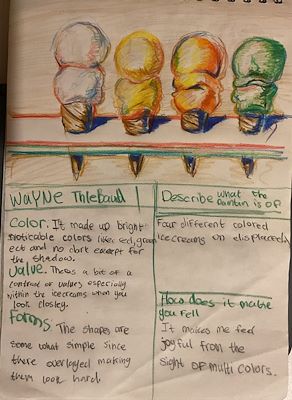 WAYNE ThIebaud
Color. It made up bright
noticable colors like red, green
ect and no dark except for
the shadow.
Value. Theres a bit of a
contrast of values especially
within the icecreams when you
look closley.
Forms. The shapes are
some what simple since
there overlayed making
them look hard
Describe what the
Paintain is of
Four different colored
icecreams on displayed
How does it make
you fell
It makes me feel
joyful from the
sight of multi colors.